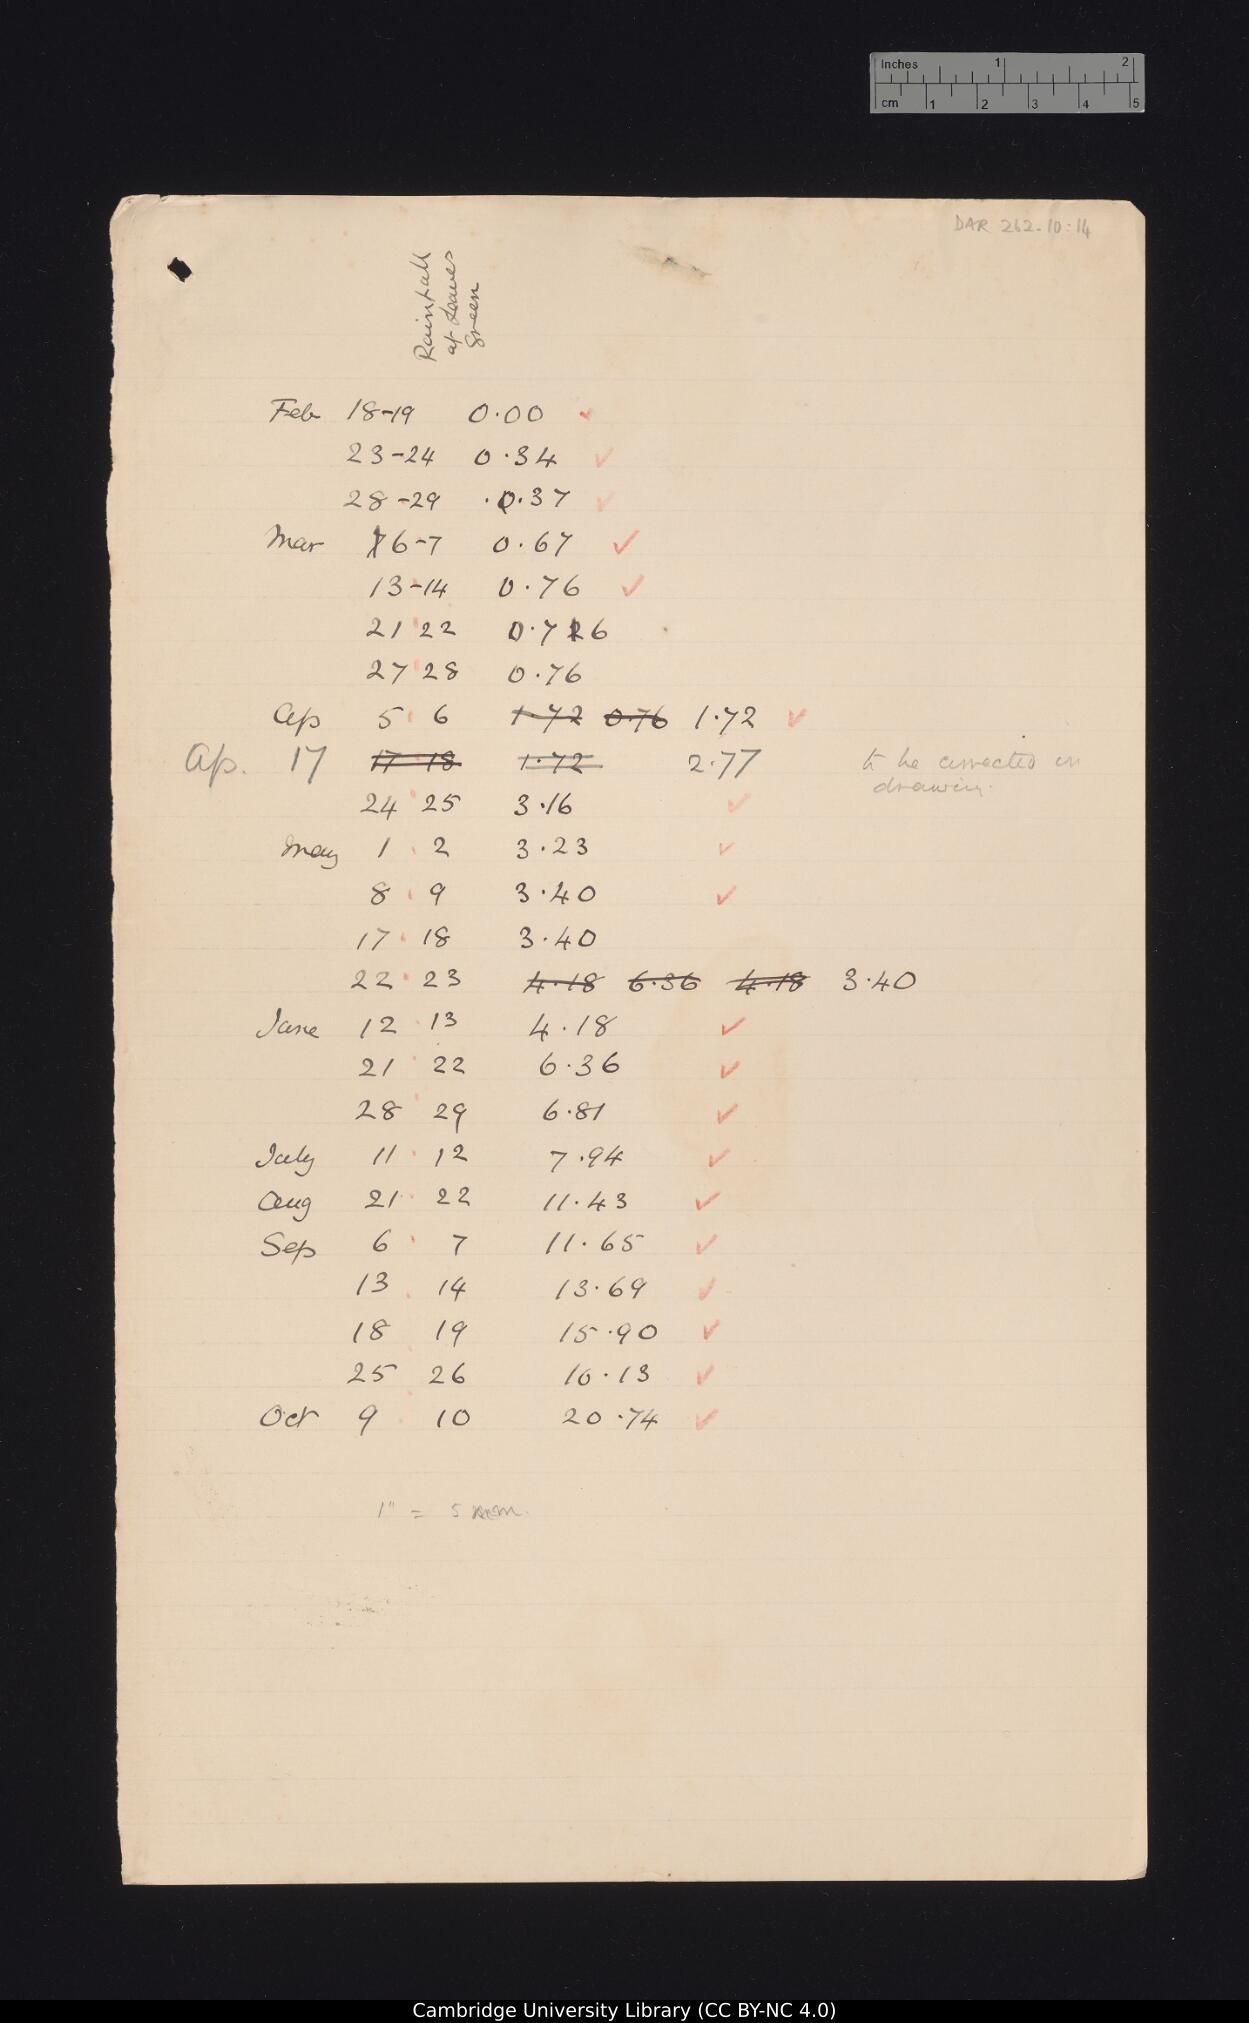 Inches 1 2
cm 1 2 3 4 5
DAR 262.10:14
Rainfall
at Leaves
Green
Feb 18-19 0.00 ✓
23-24 0.34 ✓
28-29 .0.37 ✓
Mar 6-7 0.67 ✓
13-14 0.76 ✓
21 22 0.76
27 28 0.76
Ap 5 6 1.72 0.76 1.72 ✓
Ap. 17 17 18 1.72 2.77 to be corrected in
drawing.
24 25 3.16 ✓
May 1 2 3.23 ✓
8 9 3.40 ✓
17 18 3.40
22 23 4.18 6.36 4.18 3.40
June 12 13 4.18 ✓
21 22 6.36 ✓
28 29 6.81 ✓
July 11 12 7.94 ✓
Aug 21 22 11.43 ✓
Sep 6 7 11.65 ✓
13 14 13.69 ✓
18 19 15.90 ✓
25 26 16.13 ✓
Oct 9 10 20.74 ✓
1" = 5 mm.
Cambridge University Library (CC BY-NC 4.0)